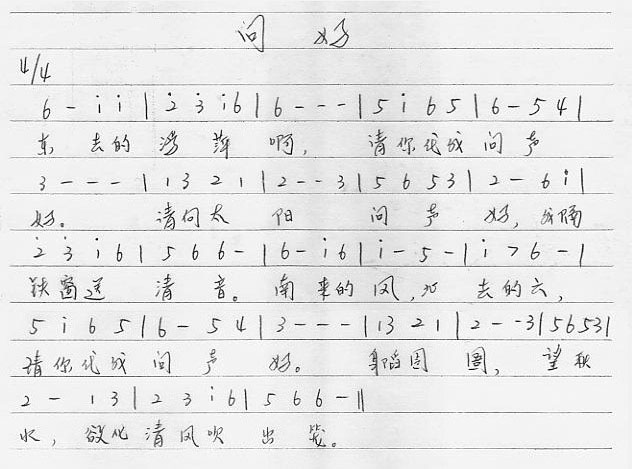 问 好
4/4
6 - i̇ i̇ | 2̇ 3̇ i̇ 6 | 6 - - - | 5 i̇ 6 5 | 6 - 5 4 |
东 去的 浮 萍 啊， 请你代我 问 声
3 - - - | 1 3 2 1 | 2 - - 3 | 5 6 5 3 | 2 - 6 i̇ |
好。 请问太 阳 问 声 好，我隔
2̇ 3̇ i̇ 6 | 5 6 6 - | 6 - i̇ 6 | i̇ - 5 - | i̇ 7 6 - |
铁窗送 清 音。南 来的 风，北 去的 云，
5 i̇ 6 5 | 6 - 5 4 | 3 - - - | 1 3 2 1 | 2 - - 3 | 5 6 5 3 |
请你代我 问 声 好。 身陷囹 圄， 望 秋
2 - 1 3 | 2 3 i̇ 6 | 5 6 6 - ‖
水，欲化清风吹 出 笼。